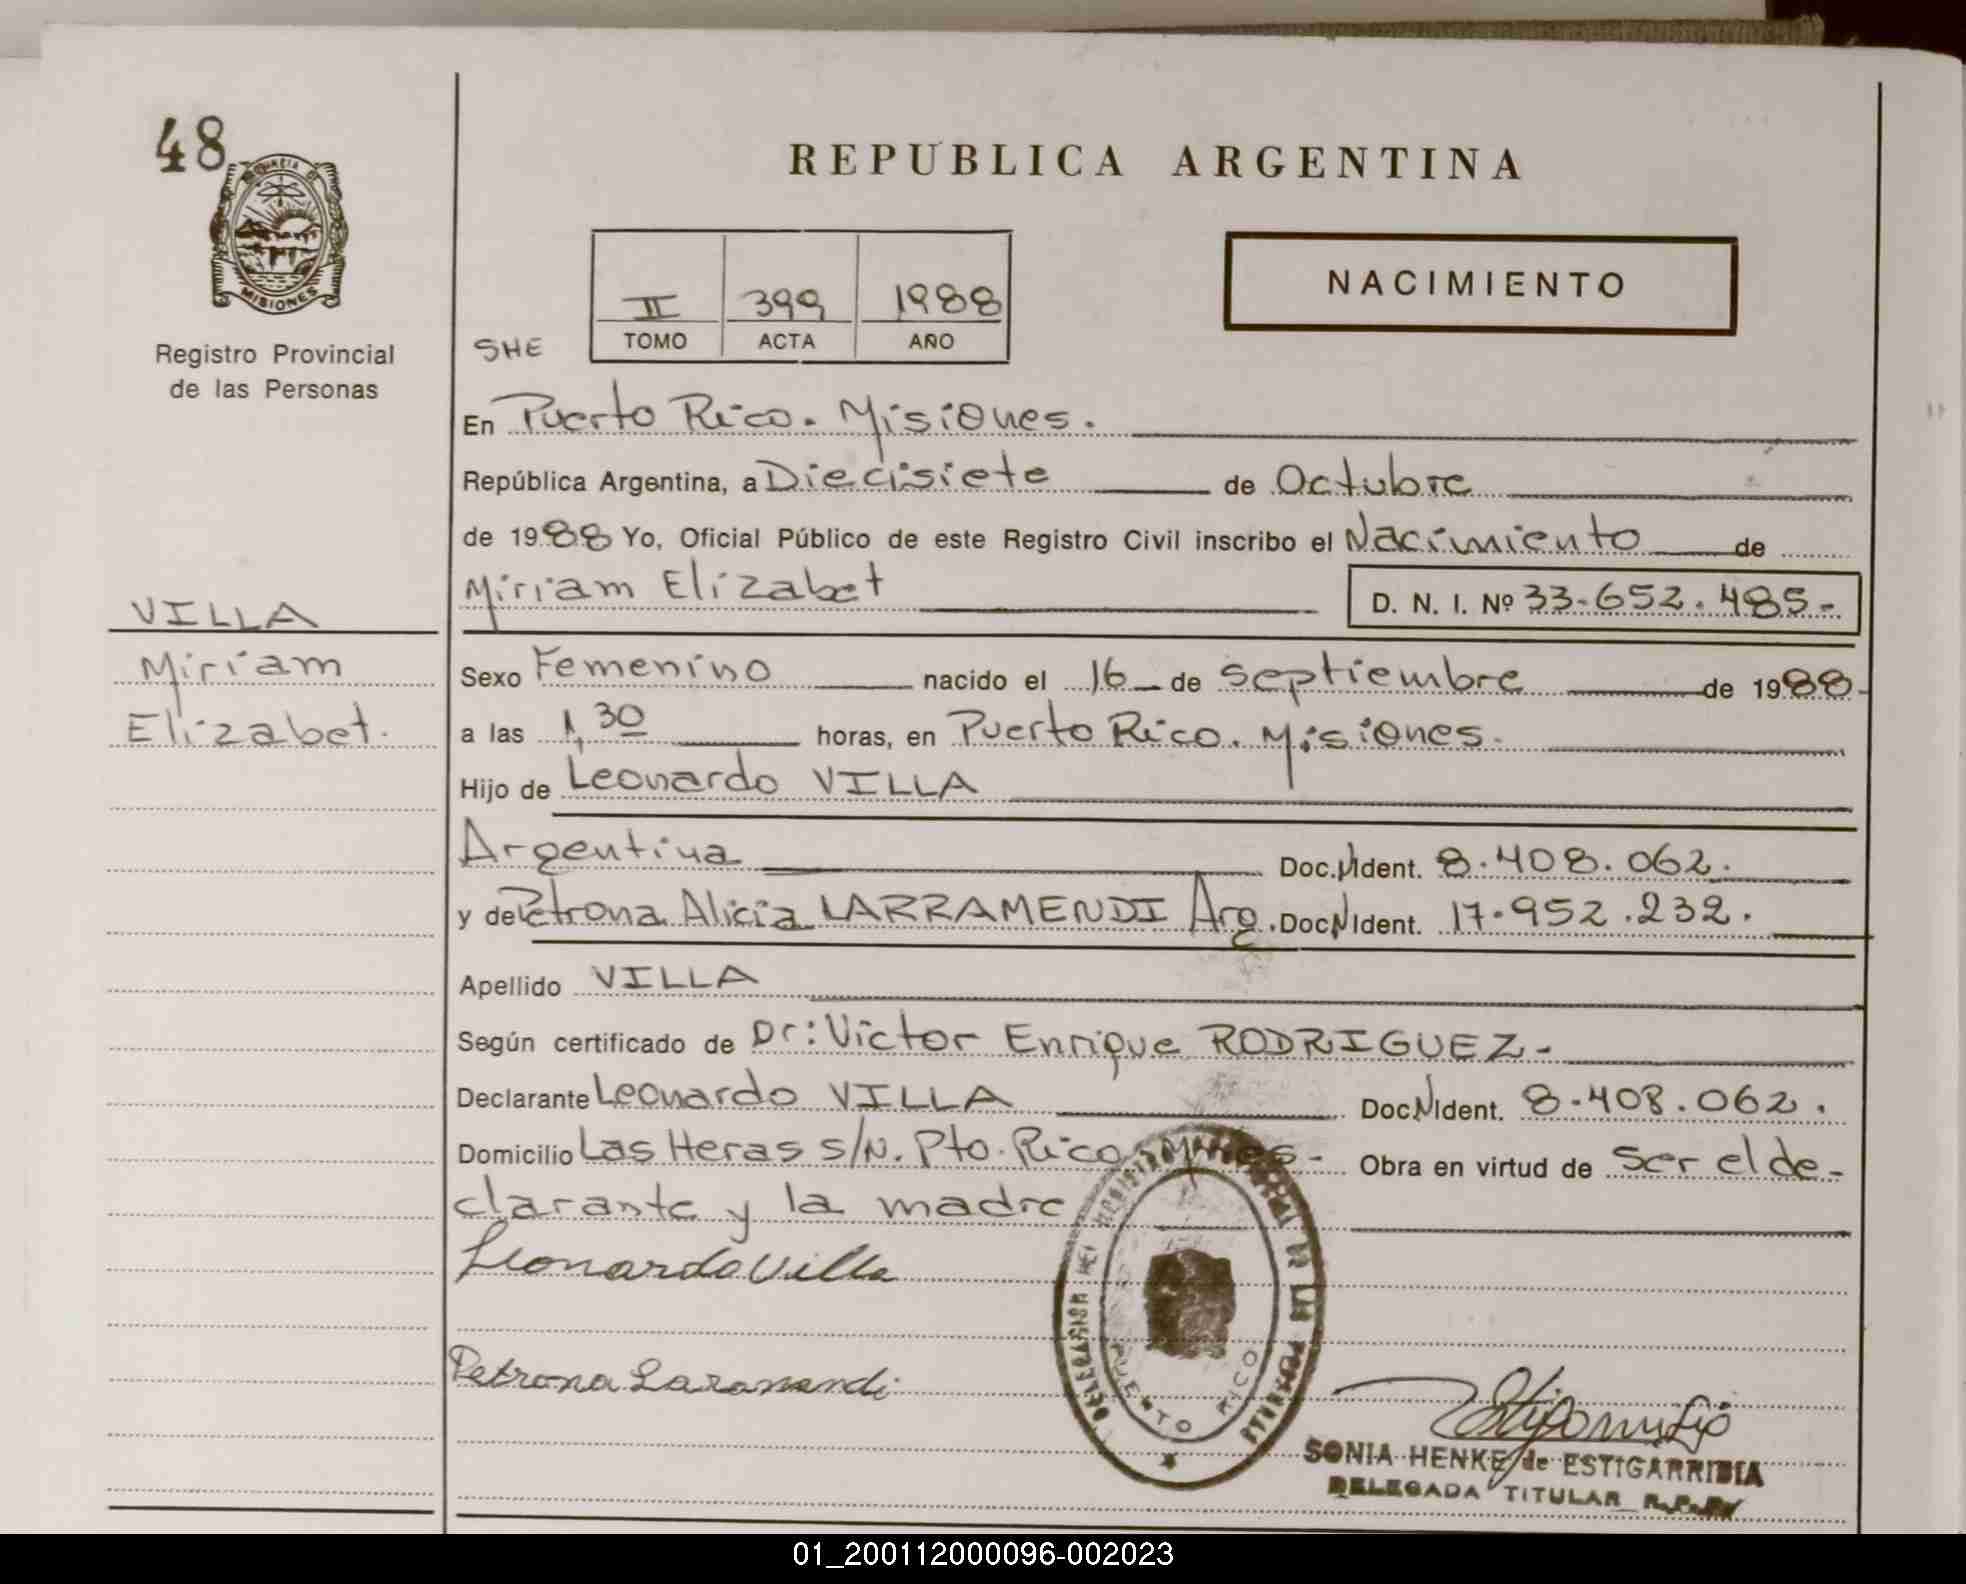 48
PROVINCIA DE
MISIONES
Registro Provincial
de las Personas
REPUBLICA ARGENTINA
II 399 1988
TOMO ACTA AÑO
NACIMIENTO
SHE
En Puerto Rico. Misiones.
República Argentina, a Diecisiete de Octubre
de 1988 Yo, Oficial Público de este Registro Civil inscribo el Nacimiento de
Miriam Elizabet D. N. I. Nº 33.652.485.-
VILLA
Miriam
Elizabet.
Sexo Femenino nacido el 16 de Septiembre de 1988-
a las 1,30 horas, en Puerto Rico. Misiones.
Hijo de Leonardo VILLA
Argentina Doc.N Ident. 8.408.062.
y de Petrona Alicia LARRAMENDI Arg. Doc.N Ident. 17.952.232.
Apellido VILLA
Según certificado de Dr: Victor Enrique RODRIGUEZ-
Declarante Leonardo VILLA Doc.N Ident. 8.408.062.
Domicilio Las Heras s/N. Pto. Rico Mnes- Obra en virtud de Ser el de-
clarante y la madre
Leonardo Villa
Petrona Laramendi
DELEGACION DEL REGISTRO PROVINCIAL DE LAS PERSONAS
PUERTO RICO
SONIA HENKE de ESTIGARRIBIA
DELEGADA TITULAR R.P.P.
01_200112000096-002023